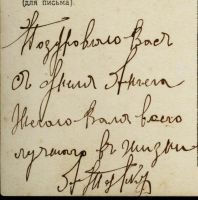 (для письма).
Поздровляю Вася
с Днемъ Ангела
Желаю Вамъ всего
лучшаго въ жизни